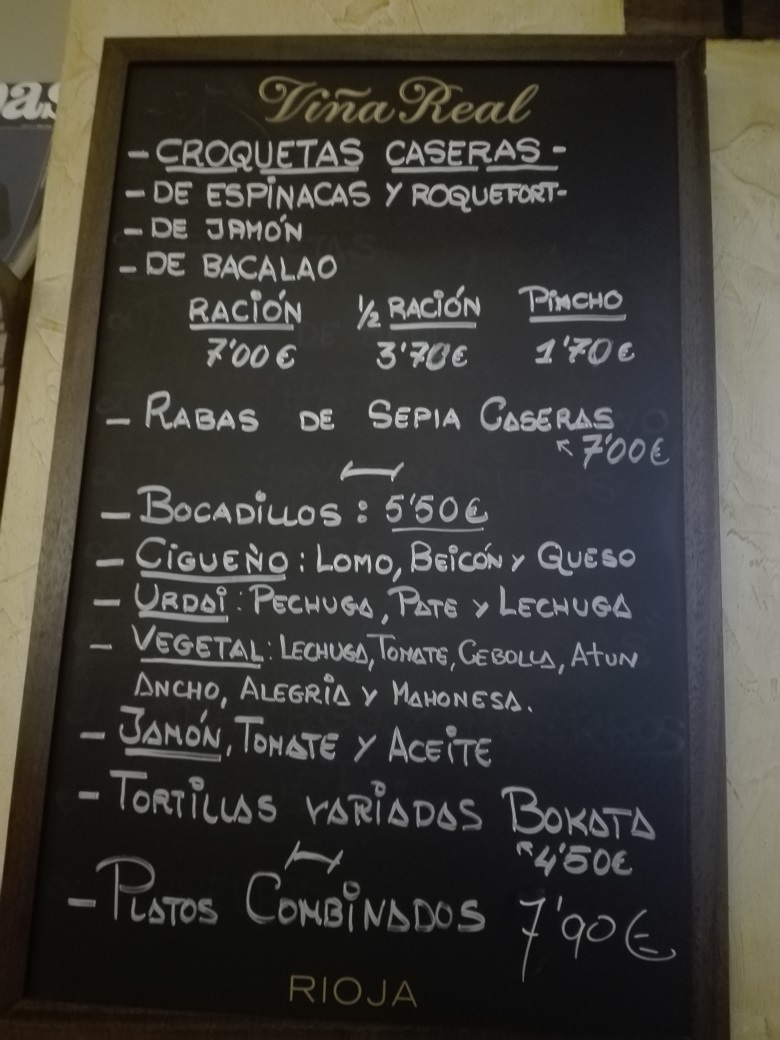 as
Viña Real
- CROQUETAS CASERAS -
- DE ESPINACAS Y ROQUEFORT-
- DE JAMÓN
- DE BACALAO
RACIÓN 1/2 RACIÓN PINCHO
7'00€ 3'70€ 1'70€
- RABAS DE SEPIA CASERAS
↖ 7'00€
- BOCADILLOS : 5'50€
- CIGUEÑO : LOMO, BEICÓN Y QUESO
- URDAI : PECHUGA, PATE Y LECHUGA
- VEGETAL : LECHUGA, TOMATE, CEBOLLA, ATUN
ANCHO, ALEGRÍA Y MAHONESA.
- JAMÓN, TOMATE Y ACEITE
- TORTILLAS VARIADAS BOKATA
↖ 4'50€
- PLATOS COMBINADOS 7'90€
RIOJA